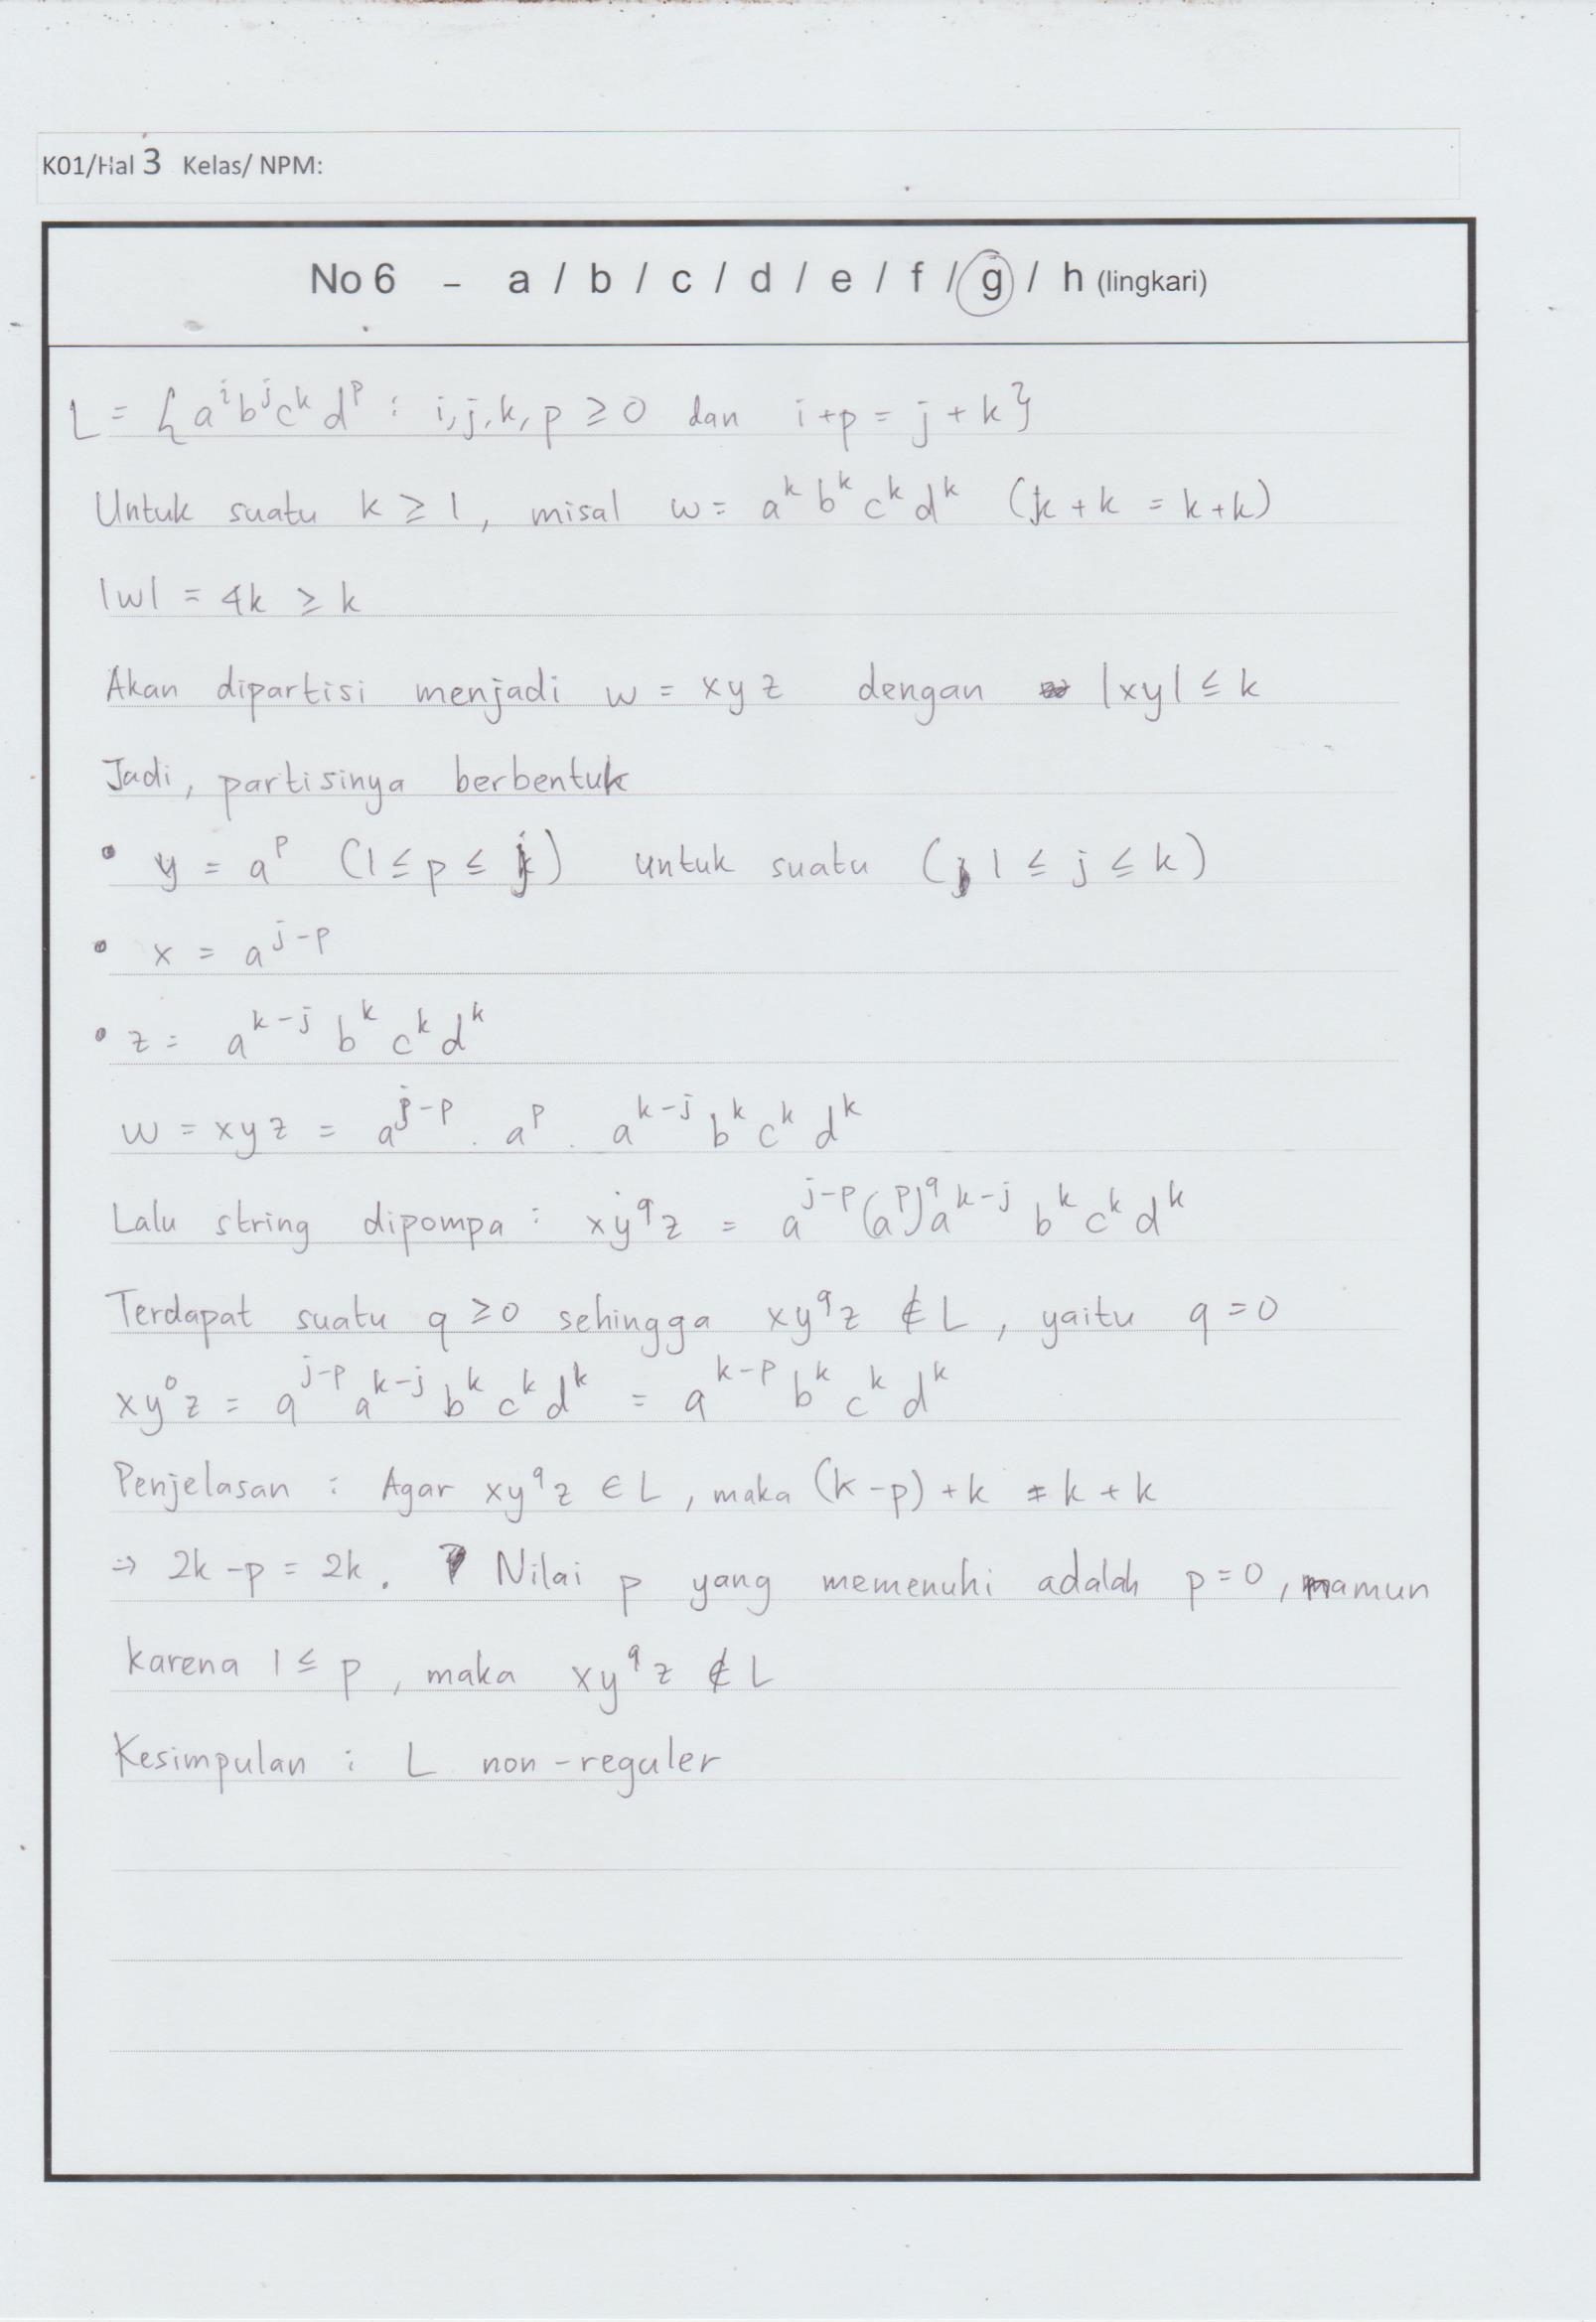 K01/Hal 3 Kelas/ NPM:
No 6 - a / b / c / d / e / f / g / h (lingkari)
L = {aⁱbʲcᵏdᵖ : i,j,k,p ≥ 0 dan i+p = j+k}
Untuk suatu k ≥ 1, misal w = aᵏbᵏcᵏdᵏ (k+k = k+k)
|w| = 4k ≥ k
Akan dipartisi menjadi w = xyz dengan |xy| ≤ k
Jadi, partisinya berbentuk
• y = aᵖ (1 ≤ p ≤ j) untuk suatu (1 ≤ j ≤ k)
• x = a^{j-p}
• z = a^{k-j} bᵏ cᵏ dᵏ
w = xyz = a^{j-p} . aᵖ . a^{k-j} bᵏ cᵏ dᵏ
Lalu string dipompa : xy^q z = a^{j-p} (aᵖ)^q a^{k-j} bᵏ cᵏ dᵏ
Terdapat suatu q ≥ 0 sehingga xy^q z ∉ L, yaitu q = 0
xy⁰z = a^{j-p} a^{k-j} bᵏ cᵏ dᵏ = a^{k-p} bᵏ cᵏ dᵏ
Penjelasan : Agar xy^q z ∈ L, maka (k-p)+k = k+k
⇒ 2k-p = 2k. Nilai p yang memenuhi adalah p=0, namun
karena 1 ≤ p, maka xy^q z ∉ L
Kesimpulan : L non-reguler